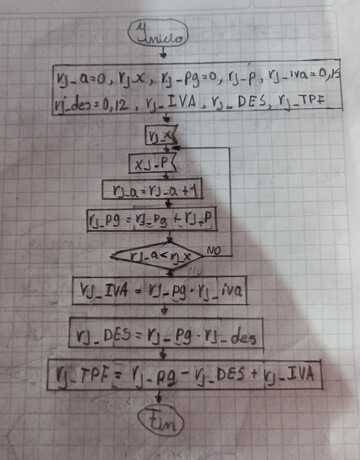 Inicio
rj_a=0, rj_x, rj_pg=0, rj_p, rj_iva=0,15
rj_des=0,12, rj_IVA, rj_DES, rj_TPF
rj_x
xj_P
rj_a=rj_a+1
rj_pg=rj_pg+rj_p
rj_a<rj_x
NO
rj_IVA = rj_pg·rj_iva
rj_DES=rj_pg·rj_des
rj_TPF = rj_pg - rj_DES + rj_IVA
Fin